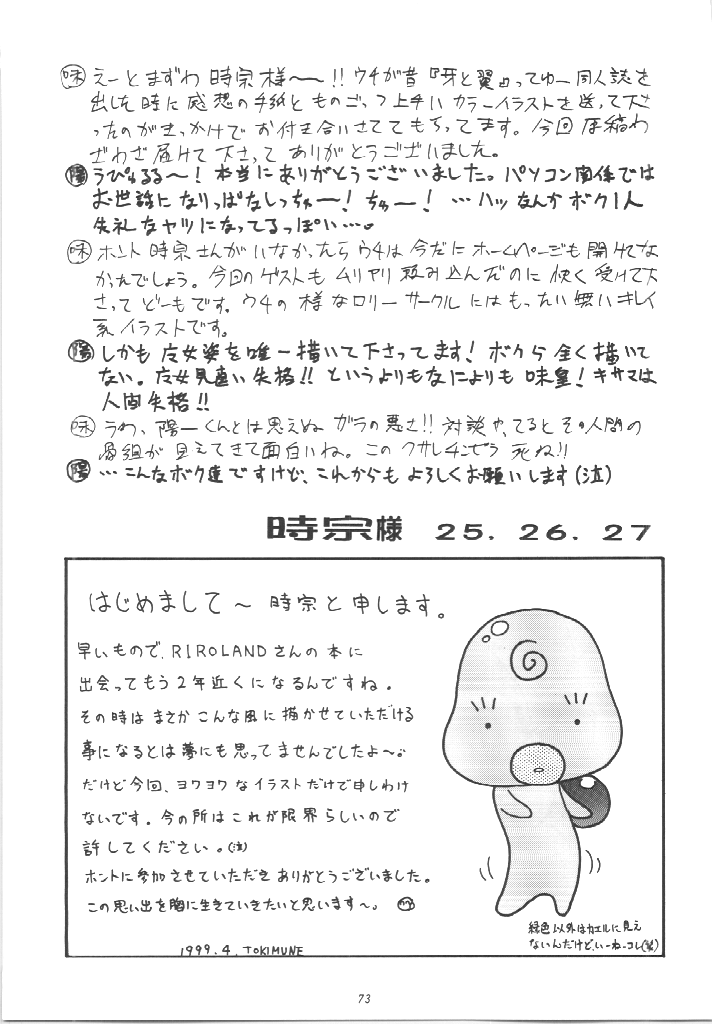 味 えーとまずわ 時宗様〜〜!! ウチが昔『牙と翼』ってゆー同人誌を
出した時に感想の手紙とものごっつ上手いカラーイラストを送って下さ
ったのがきっかけでお付き合いさせてもらってます。今回原稿わ
ざわざ届けて下さって ありがとうございました。
陽 うぴゅるる〜! 本当にありがとうございました。パソコン関係では
お世話になりっぱなしっちゅー! ちゅー! …ハッなんかボク1人
失礼なヤツになってるっぽい…。
味 ホント時宗さんがいなかったらウチは今だにホームページも開けてな
かったでしょう。今回のゲストもムリヤリ頼み込んだのに快く受けて下
さってどーもです。ウチの様なロリーサークルにはもったい無いキレイ
系イラストです。
陽 しかも 女姿を唯一描いて下さってます! ボクら全く描いて
ない。 女見直い失格!! というよりもなによりも 味皇! キサマは
人間失格!!
味 うわ、陽一くんとは思えぬ ガラの悪さ!! 対談やってるとその人間の
番組が見えてきて面白いね。このクサレ 死ね!!
陽 …こんなボク達ですけど、これからも よろしくお願いします(泣)
時宗様 25. 26. 27
はじめまして〜 時宗と申します。
早いもので、RIROLANDさんの本に
出会ってもう2年近くになるんですね。
その時はまさかこんな風に描かせていただける
事になるとは夢にも思ってませんでしたよ〜。
だけど今回、ヨワヨワなイラストだけで申しわけ
ないです。今の所はこれが限界らしいので
許してください。(泣)
ホントに参加させていただき ありがとうございました。
この思い出を胸に生きていきたいと思います〜。
1999.4. TOKIMUNE
緑色以外はカエルに見え
ないんだけど、いーねーコレ(笑)
73